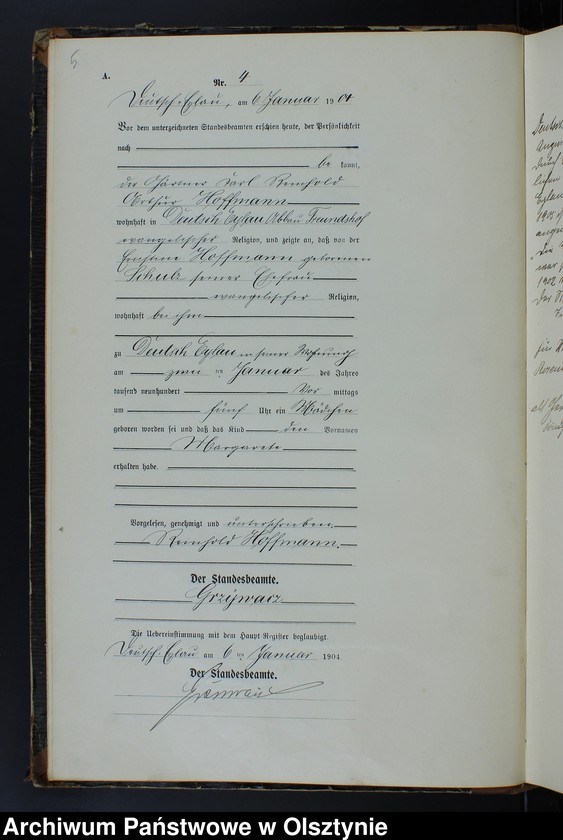 5
A.
Nr. 4
Deutsch-Eylau, am 6 Januar 1904
Vor dem unterzeichneten Standesbeamten erschien heute, der Persönlichkeit
nach
be kannt,
der Gärtner Karl Reinhold
Arthur Hoffmann
wohnhaft in Deutsch Eylau Abbau Freundshof
evangelischer Religion, und zeigte an, daß von der
Hoffmann geborenen
Schulz seiner Ehefrau
evangelischer Religion,
wohnhaft bei ihm
zu Deutsch Eylau in seiner Wohnung
am zwei ten Januar des Jahres
tausend neunhundert Vor mittags
um fünf Uhr ein Mädchen
geboren worden sei und daß das Kind den Vornamen
Margarete
erhalten habe.
Vorgelesen, genehmigt und unterschrieben
Reinhold Hoffmann.
Der Standesbeamte.
Grzywacz
Die Uebereinstimmung mit dem Haupt-Register beglaubigt.
Deutsch-Eylau am 6 ten Januar 1904
Der Standesbeamte.
Archiwum Państwowe w Olsztynie